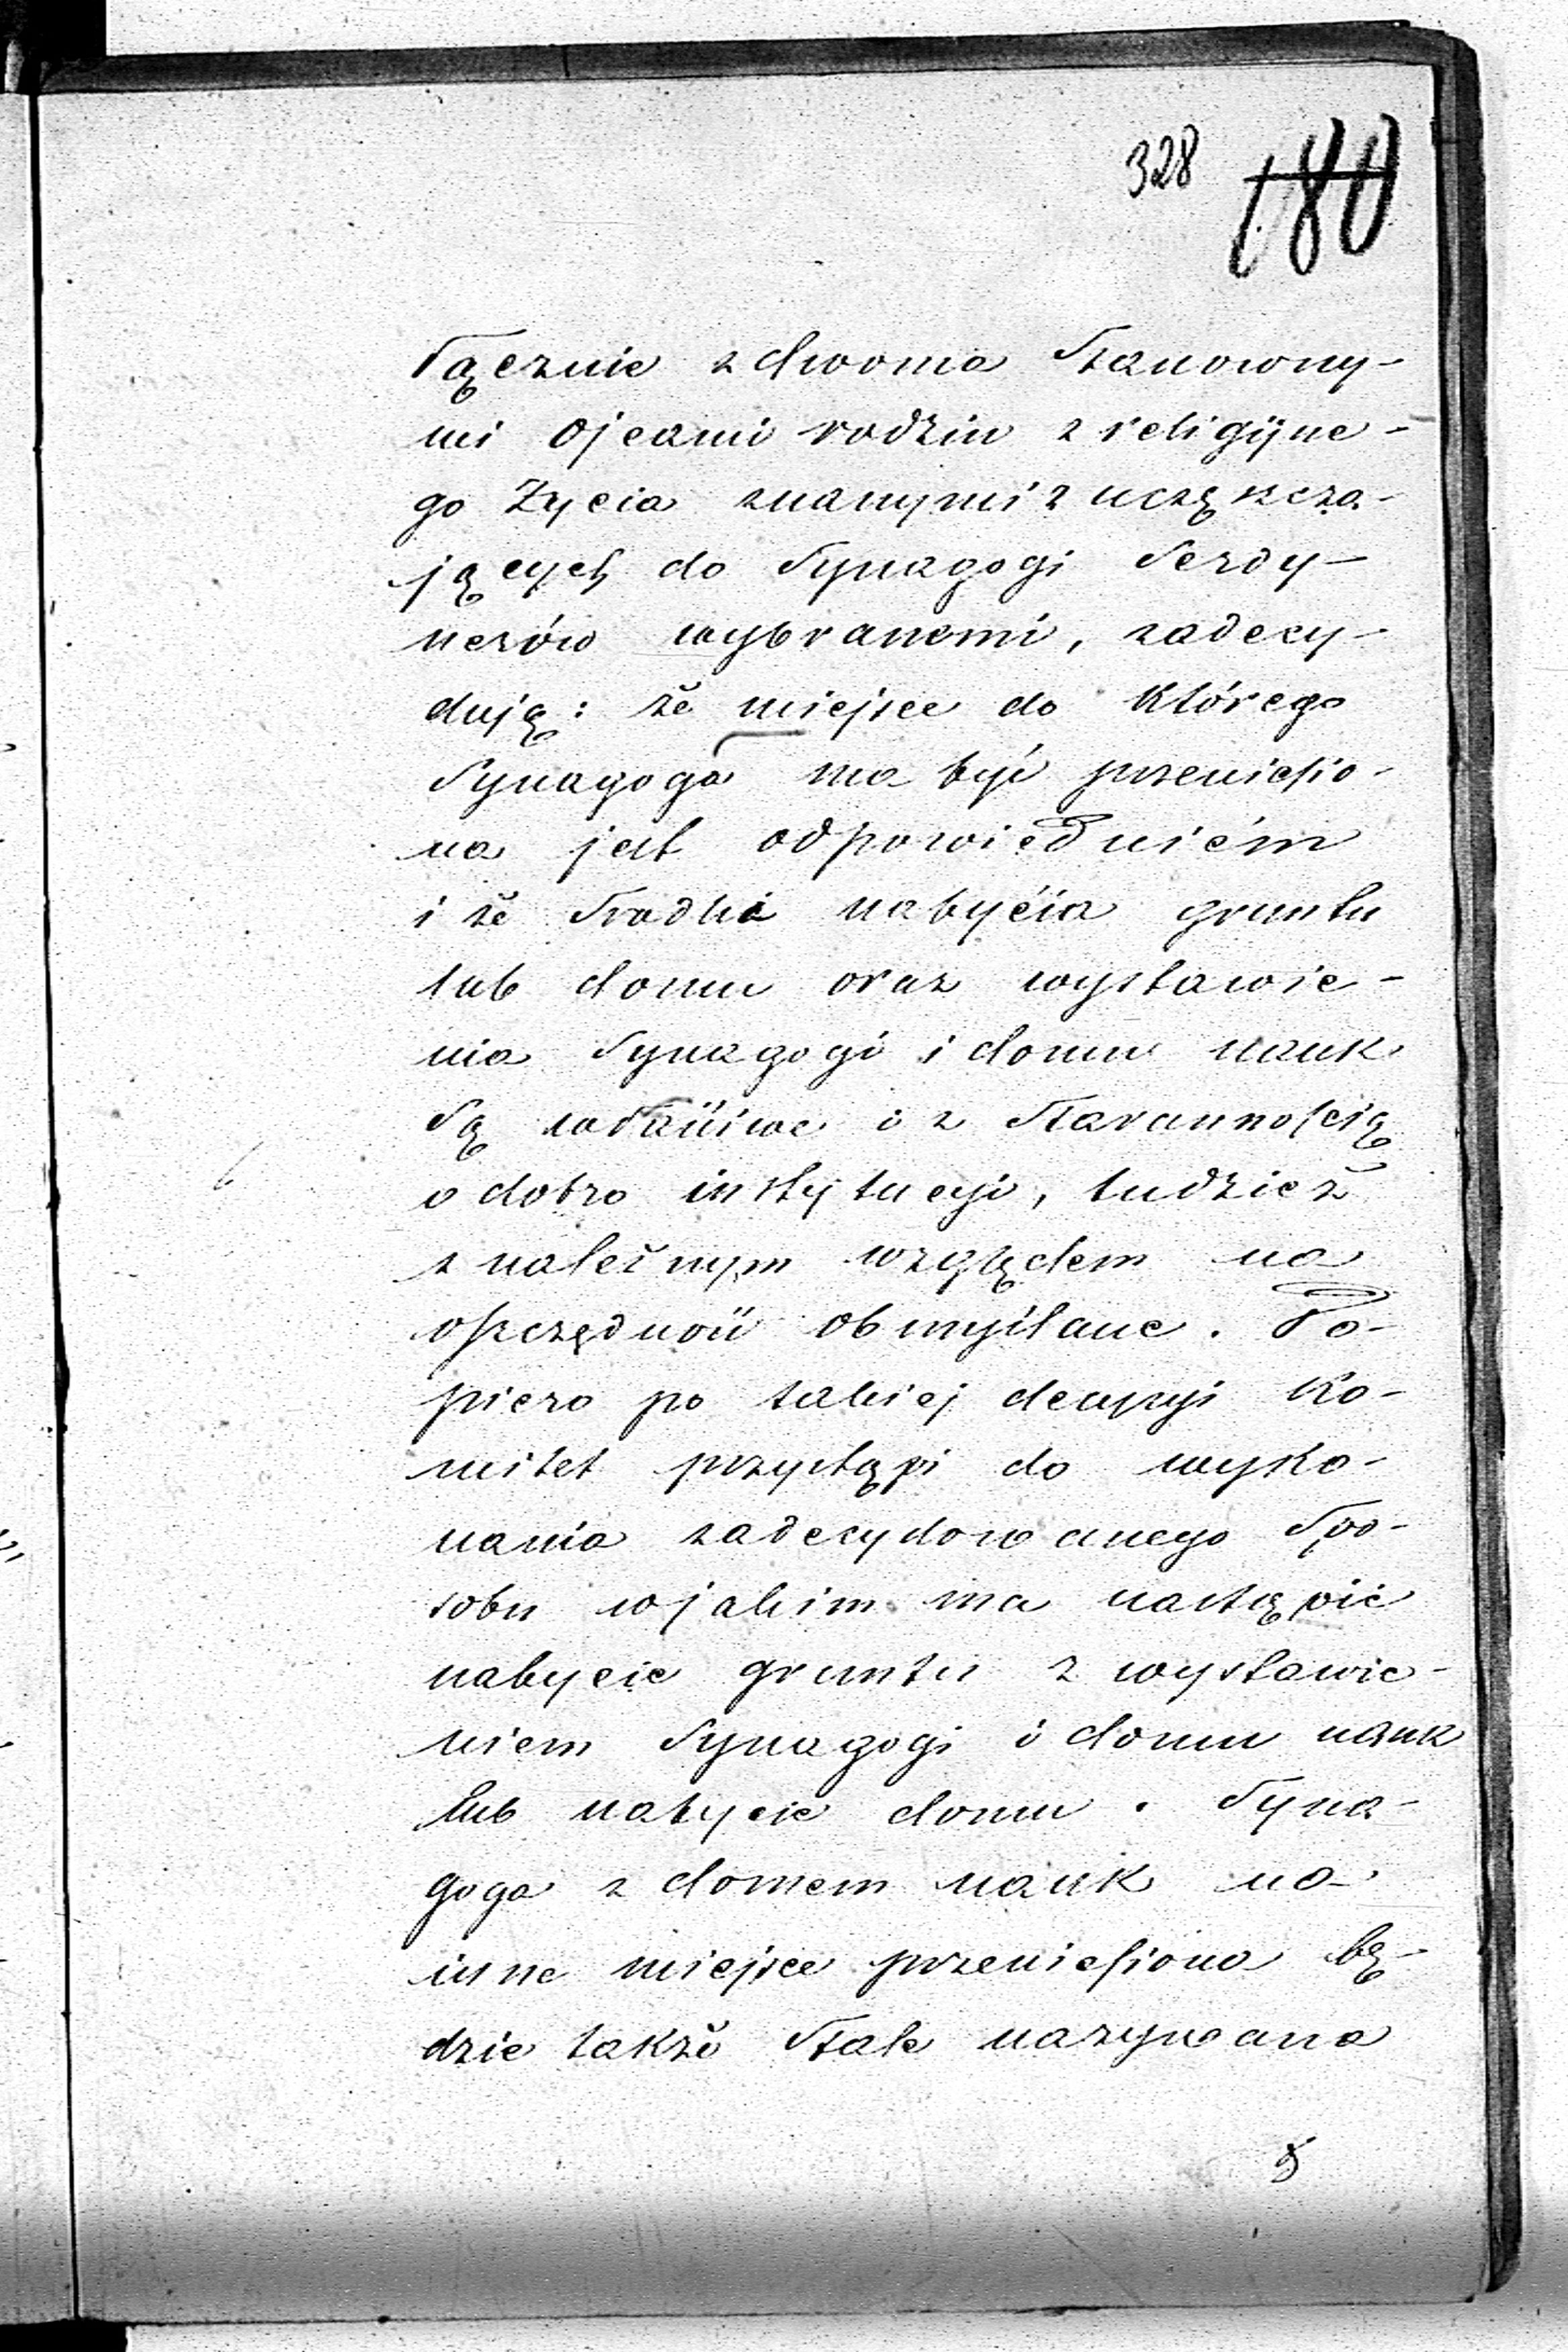 328 180
łącznie z dwoma Szanowny-
mi Ojcami rodzin z religijne-
go życia znanymi z uczęszcza-
jących do Synagogi Serdy-
nerów wybranemi, zadecy-
dują: że miejsce do którego
Synagoga ma być przeniesio-
na jest odpowiedniém
i że Srodki nabyćia gruntu
lub domu oraz wystawie-
nia Synagogi i domu nauk
Są właściwe i z Starannością
o dobro instytucyi, tudzież
z należnym względem na
oszczędność obmyślane. Do-
piero po takiej decyzyi Ko-
mitet przystąpi do wyko-
nania zadecydowanego Spo-
sobu w jakim ma nastąpić
nabycie gruntu z wystawie-
niem Synagogi i domu nauk
lub nabycie domu. Syna-
goga z domem nauk na
inne miejsce przeniesiona bę-
dzie także Stale nazywana